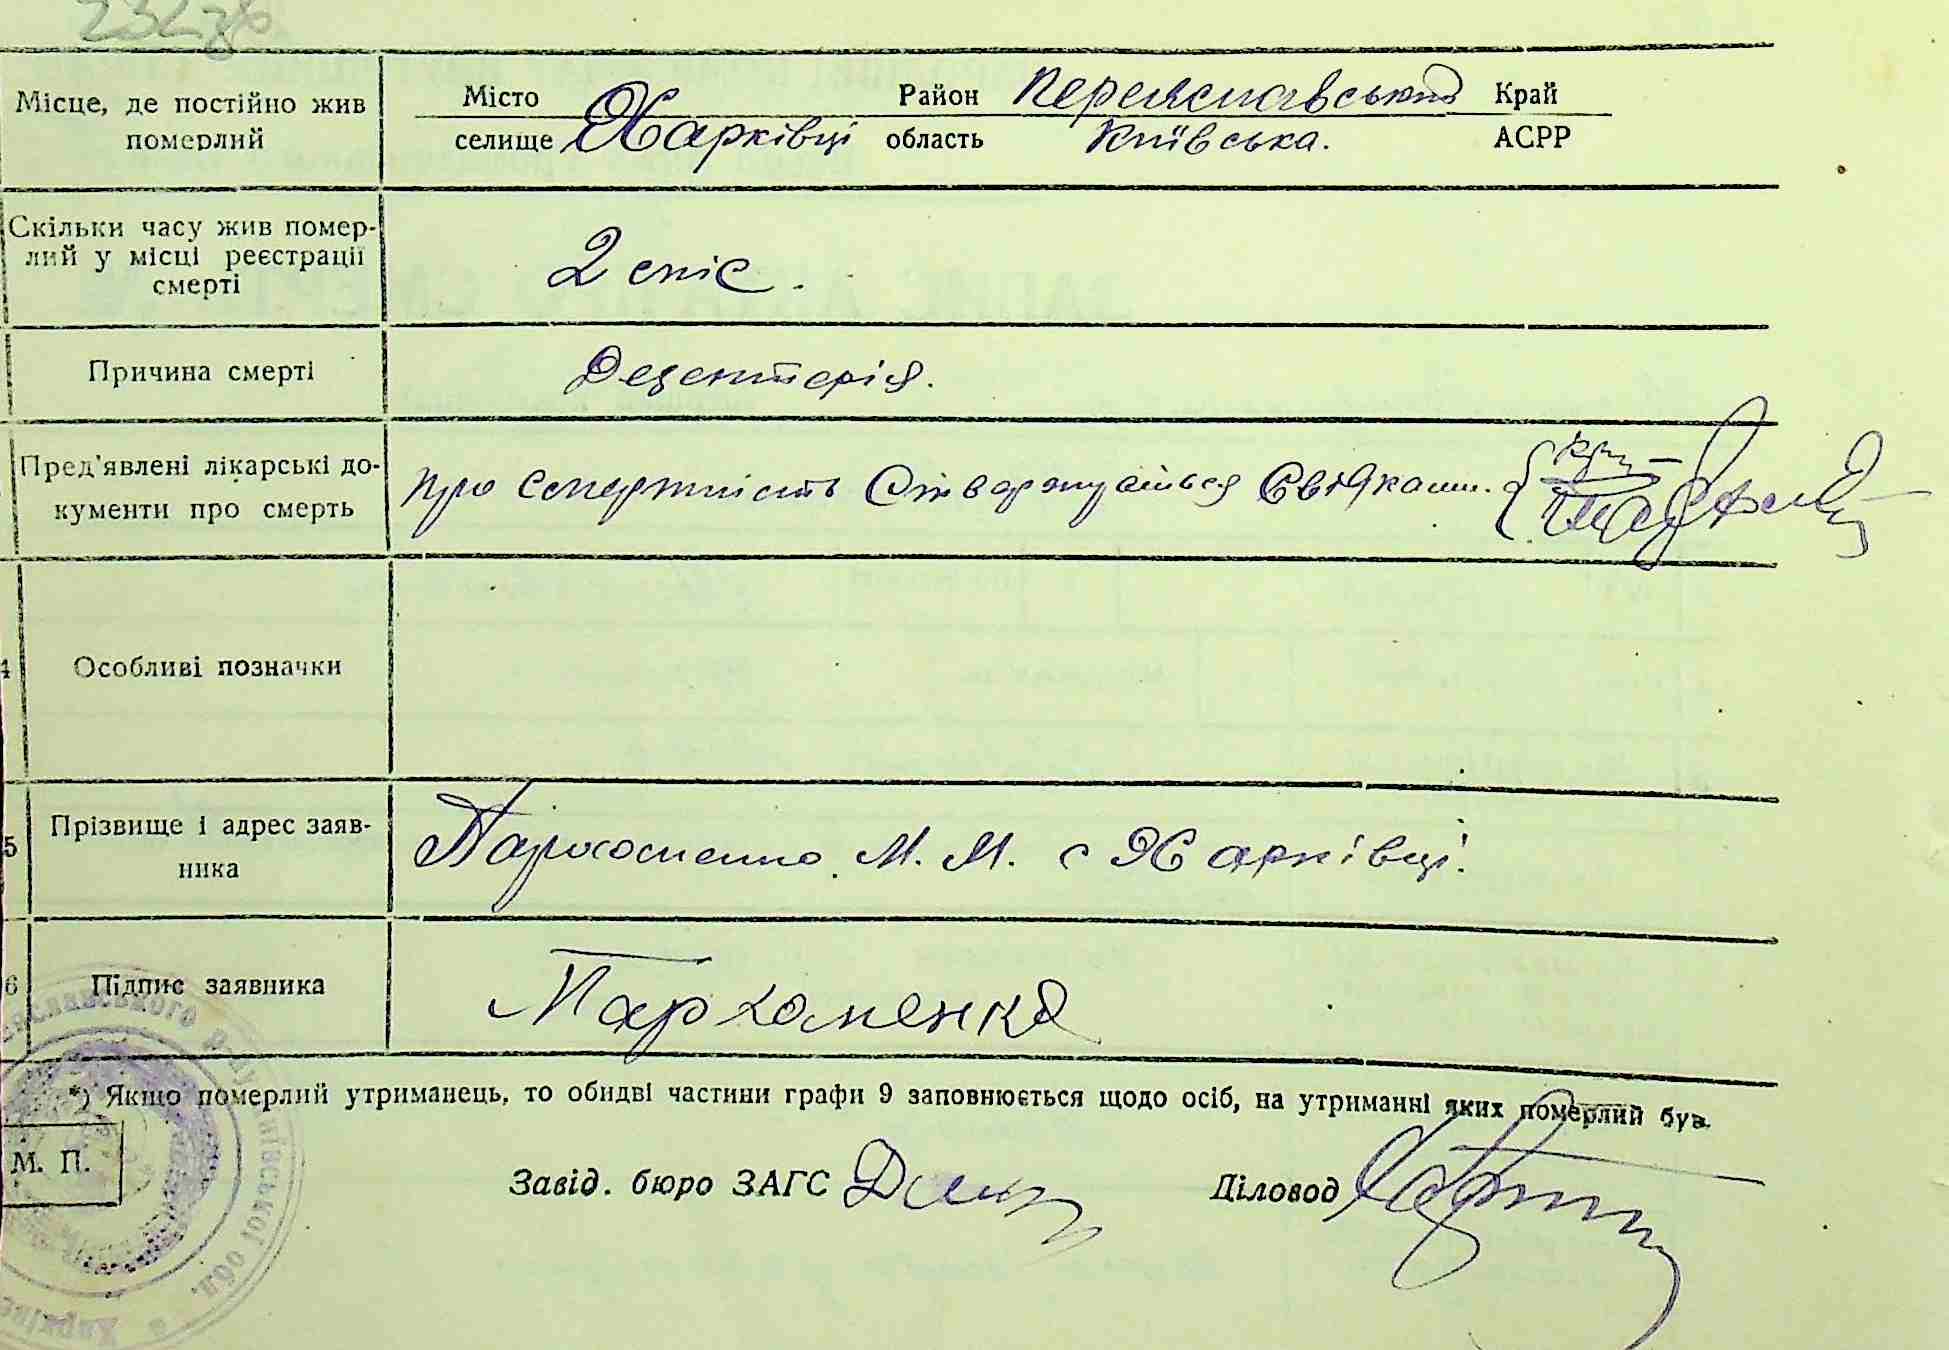 Місце, де постійно жив
померлий
Місто
селище
Харківці
Район
область
Переяславський
Київська.
Край
АСРР
Скільки часу жив помер-
лий у місці реєстрації
смерті
2 міс.
Причина смерті
Дезентерія.
Пред'явлені лікарські до-
кументи про смерть
про смертність Стверджується Свідками.
4
Особливі позначки
5
Прізвище і адрес заяв-
ника
Пархоменко. М. М. с Харківці.
6
Підпис заявника
Пархоменко
*) Якщо померлий утриманець, то обидві частини графи 9 заповнюється щодо осіб, на утриманні яких померлий був.
М. П.
Завід. бюро ЗАГС
Діловод